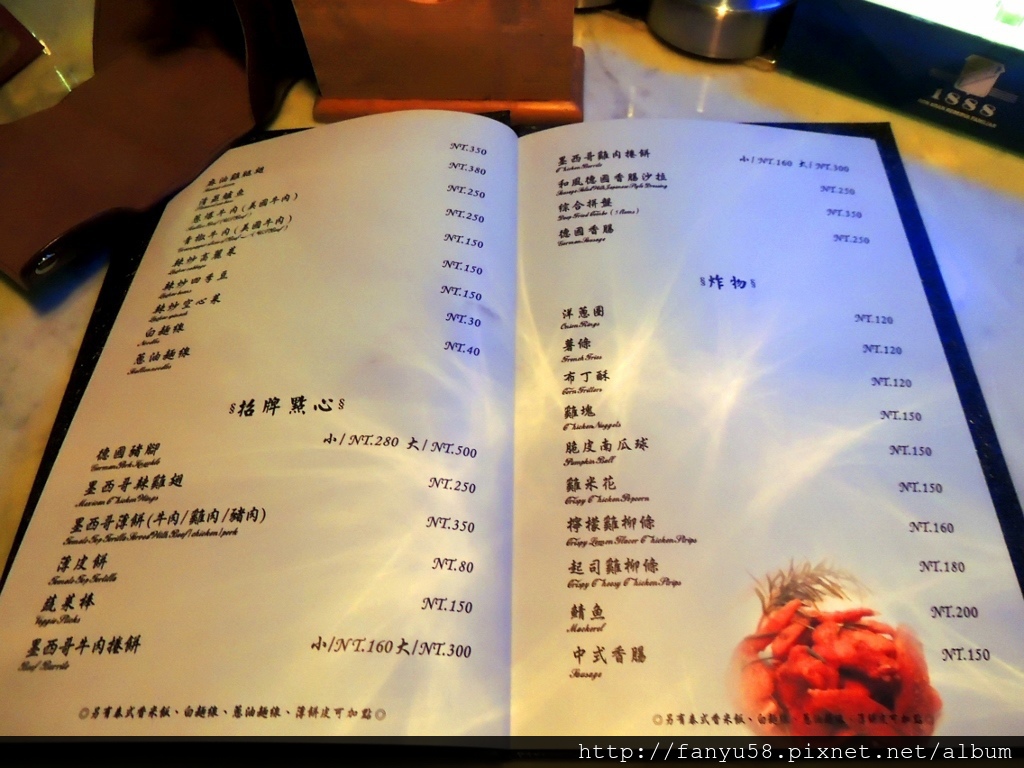 麻油雞腿翅 NT.350
清蒸鱸魚 NT.380
蔥爆牛肉(美國牛肉) NT.250
青椒牛肉(美國牛肉) NT.250
辣炒高麗菜 NT.150
辣炒四季豆 NT.150
辣炒空心菜 NT.150
白麵線 NT.30
Noodle
蔥油麵線 NT.40
§招牌點心§
德國豬腳 小/NT.280 大/NT.500
German Pork Knuckle
墨西哥辣雞翅 NT.250
Mexican Chicken Wings
墨西哥薄餅(牛肉/雞肉/豬肉) NT.350
薄皮餅 NT.80
蔬菜棒 NT.150
Veggie Sticks
墨西哥牛肉捲餅 小/NT.160大/NT.300
Beef Burrito
◎另有泰式香米飯、白麵線、蔥油麵線、薄餅皮可加點◎
墨西哥雞肉捲餅 小/NT.160 大/NT.300
Chicken Burrito
和風德國香腸沙拉 NT.250
Sausage Salad With Japanese Style Dressing
綜合拼盤 NT.350
德國香腸 NT.250
German Sausage
§炸物§
洋蔥圈 NT.120
Onion Rings
薯條 NT.120
French Fries
布丁酥 NT.120
Corn Fritters
雞塊 NT.150
Chicken Nuggets
脆皮南瓜球 NT.150
Pumpkin Ball
雞米花 NT.150
Crispy Chicken Popcorn
檸檬雞柳條 NT.160
Crispy Lemon Flavor Chicken Strips
起司雞柳條 NT.180
Crispy Cheesy Chicken Strips
鯖魚 NT.200
Mackerel
中式香腸 NT.150
Sausage
◎另有泰式香米飯、白麵線、蔥油麵線、薄餅皮可加點◎
1888
http://fanyu58.pixnet.net/album